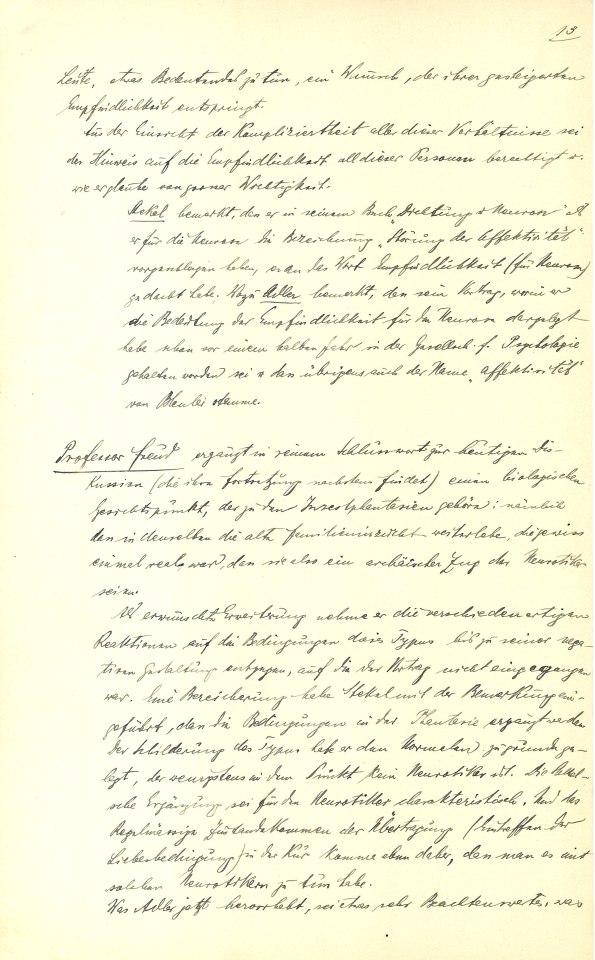 13
Leute, etwas Bedeutendes zu tun, ein Wunsch, der ihrer gesteigerten
Empfindlichkeit entspringt.
Aus der Einsicht der Kompliziertheit aller dieser Verhältnisse sei
der Hinweis auf die Empfindlichkeit all dieser Personen berechtigt u.
wie er glaube von grosser Wichtigkeit.
Stekel bemerkt, dass er in seinem Buch „Dichtung u Neurose"
er für die Neurose die Bezeichnung „Störung der Affektivität"
vorgeschlagen habe, er an das Wort Empfindlichkeit (für Neurose)
gedacht habe. Wozu Adler bemerkt, dass sein Vortrag, worin er
die Bedeutung der Empfindlichkeit für die Neurose dargelegt
habe schon vor einem halben Jahr in der Gesellsch. f. Psychologie
gehalten worden sei u dass übrigens auch der Name „Affektivität"
von Bleuler stamme.
Professor Freud ergänzt in seinem Schlusswort zur heutigen Dis-
kussion (die ihre Fortsetzung nächstens findet) einen biologischen
Gesichtspunkt, der zu den Inzestphantasien gehöre: nämlich
dass in denselben die alte Familieninzucht weiterlebe, die gewiss
einmal real war, dass sie also ein archäischer Zug des Neurotikers
seien.
Als erwünschte Erweiterung nehme er die verschiedenartigen
Reaktionen auf die Bedingungen dieses Typus bis zu seiner nega-
tiven Gestaltung entgegen, auf die der Vortrag nicht eingegangen
war. Eine Bereicherung habe Stekel mit der Bemerkung ein-
geführt, dass die Bedingungen in der Phantasie ergänzt werden.
Der Schilderung des Typus habe er den Normalen zugrunde ge-
legt, der wenigstens in dem Punkt kein Neurotiker ist. Die Stekel-
sche Ergänzung sei für den Neurotiker charakteristisch. Und das
Regelmässige Zustandekommen der Übertragung (Eintreffen der
Liebesbedingung) in der Kur komme eben daher, dass man es mit
solchen Neurotikern zu tun habe.
Was Adler jetzt hervorhebt, sei etwas sehr Beachtenswertes, was